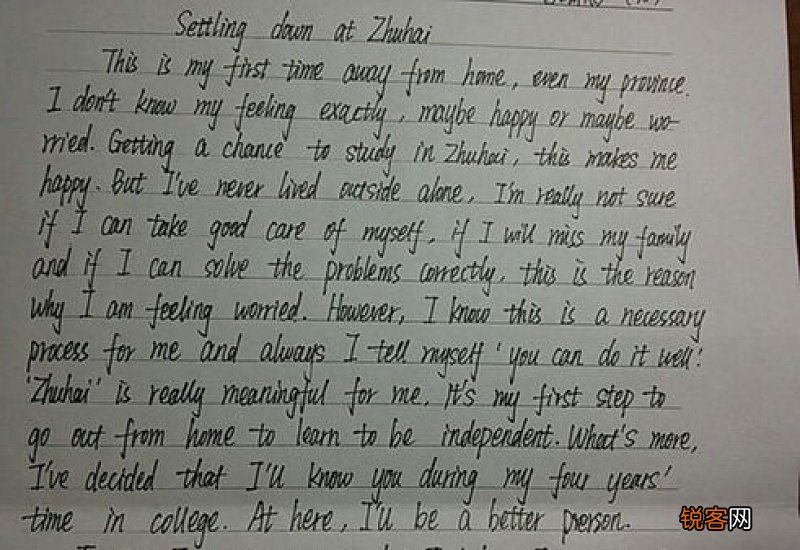 Settling down at Zhuhai
This is my first time away from home, even my province.
I don't know my feeling exactly, maybe happy or maybe wo-
rried. Getting a chance to study in Zhuhai, this makes me
happy. But I've never lived outside alone, I'm really not sure
if I can take good care of myself, if I will miss my family
and if I can solve the problems correctly, this is the reason
why I am feeling worried. However, I know this is a necessary
process for me and always I tell myself 'you can do it well'.
'Zhuhai' is really meaningful for me. It's my first step to
go out from home to learn to be independent. What's more,
I've decided that I'll know you during my four years'
time in college. At here, I'll be a better prerson.
锐客网